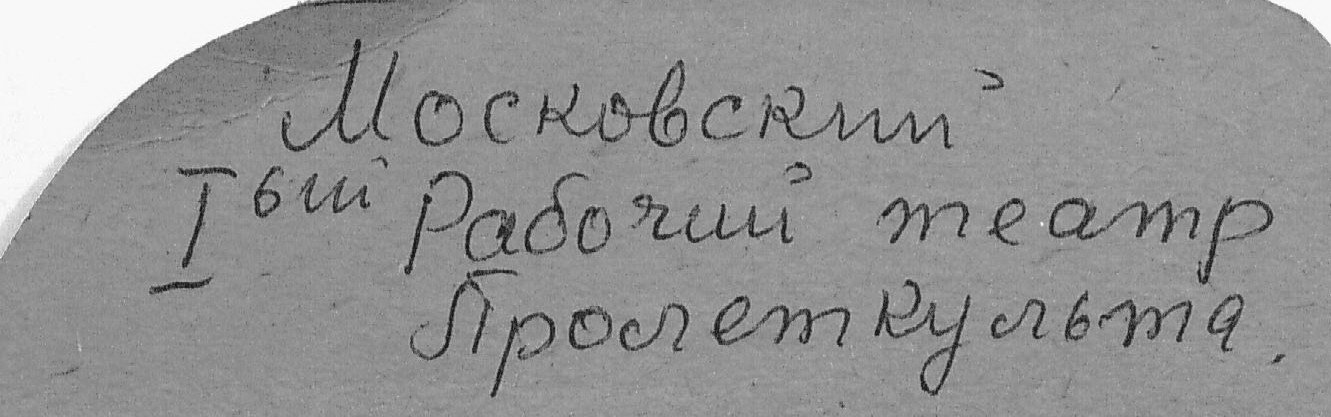 Московский
Iый Рабочий театр
Пролеткульта.